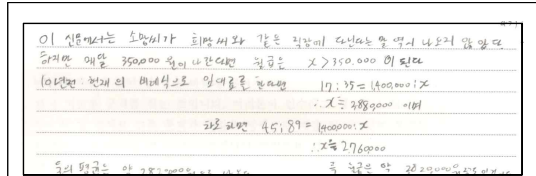 이 신문에서는 소망씨가 희망씨와 같은 직장에 다닌다는 말 역시 나오지 않았다
하지만 매달 350,000 원이 나간다면 월급은 x > 350.000 이 된다
10년전 현재의 비례식으로 임대료를 한다면 17 : 35 = 1400,000 : x
∴ x ≒ 2880,000 이며
하면 45 : 89 = 1400000 : x
∴ x ≒ 2760,000
평균은 약